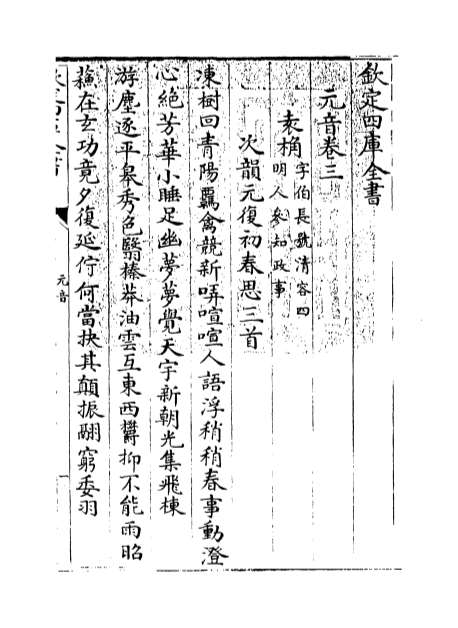 欽定四庫全書
元音卷三
袁桷字伯長號清容四明人參知政事
次韻元復初春思三首
凍樹回青陽羈禽競新哢喧喧人語浮稍稍春事動澄
心絶芳華小睡足幽夢夢覺天宇新朝光集飛棟
游塵逐平皋秀色翳榛莽油雲互東西鬱抑不能雨昭
蘇在玄功竟夕復延佇何當抉其顛振翮窮委羽
元音